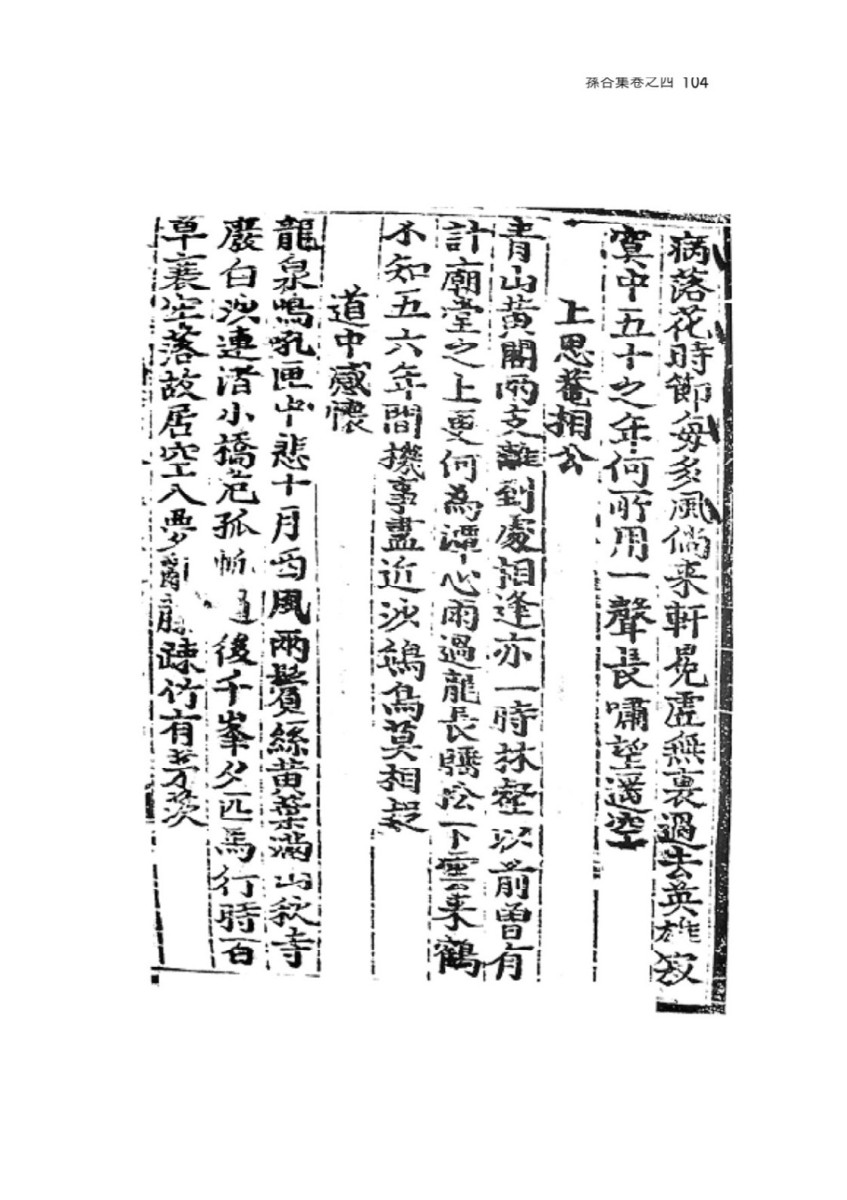 蓀谷集卷之四 104
病落花時節每多風倘来軒冕虛無裏過去英雄寂
寞中五十之年何所用一聲長嘯望遥空
上思菴相公
青山黃閣兩支離到處相逢亦一時林壑以前曾有
計廟堂之上更何為潭心雨過龍長松下雲来鶴
不知五六年間機事盡近沙鷗鳥莫相疑
道中感懷
龍泉鳴吼匣中悲十月西風兩鬢絲黃葉滿山秋寺
廢白沙連渚小橋危孤帆過後千峯夕匹馬行時百
草衰牢落故居空入夢疎竹有茨